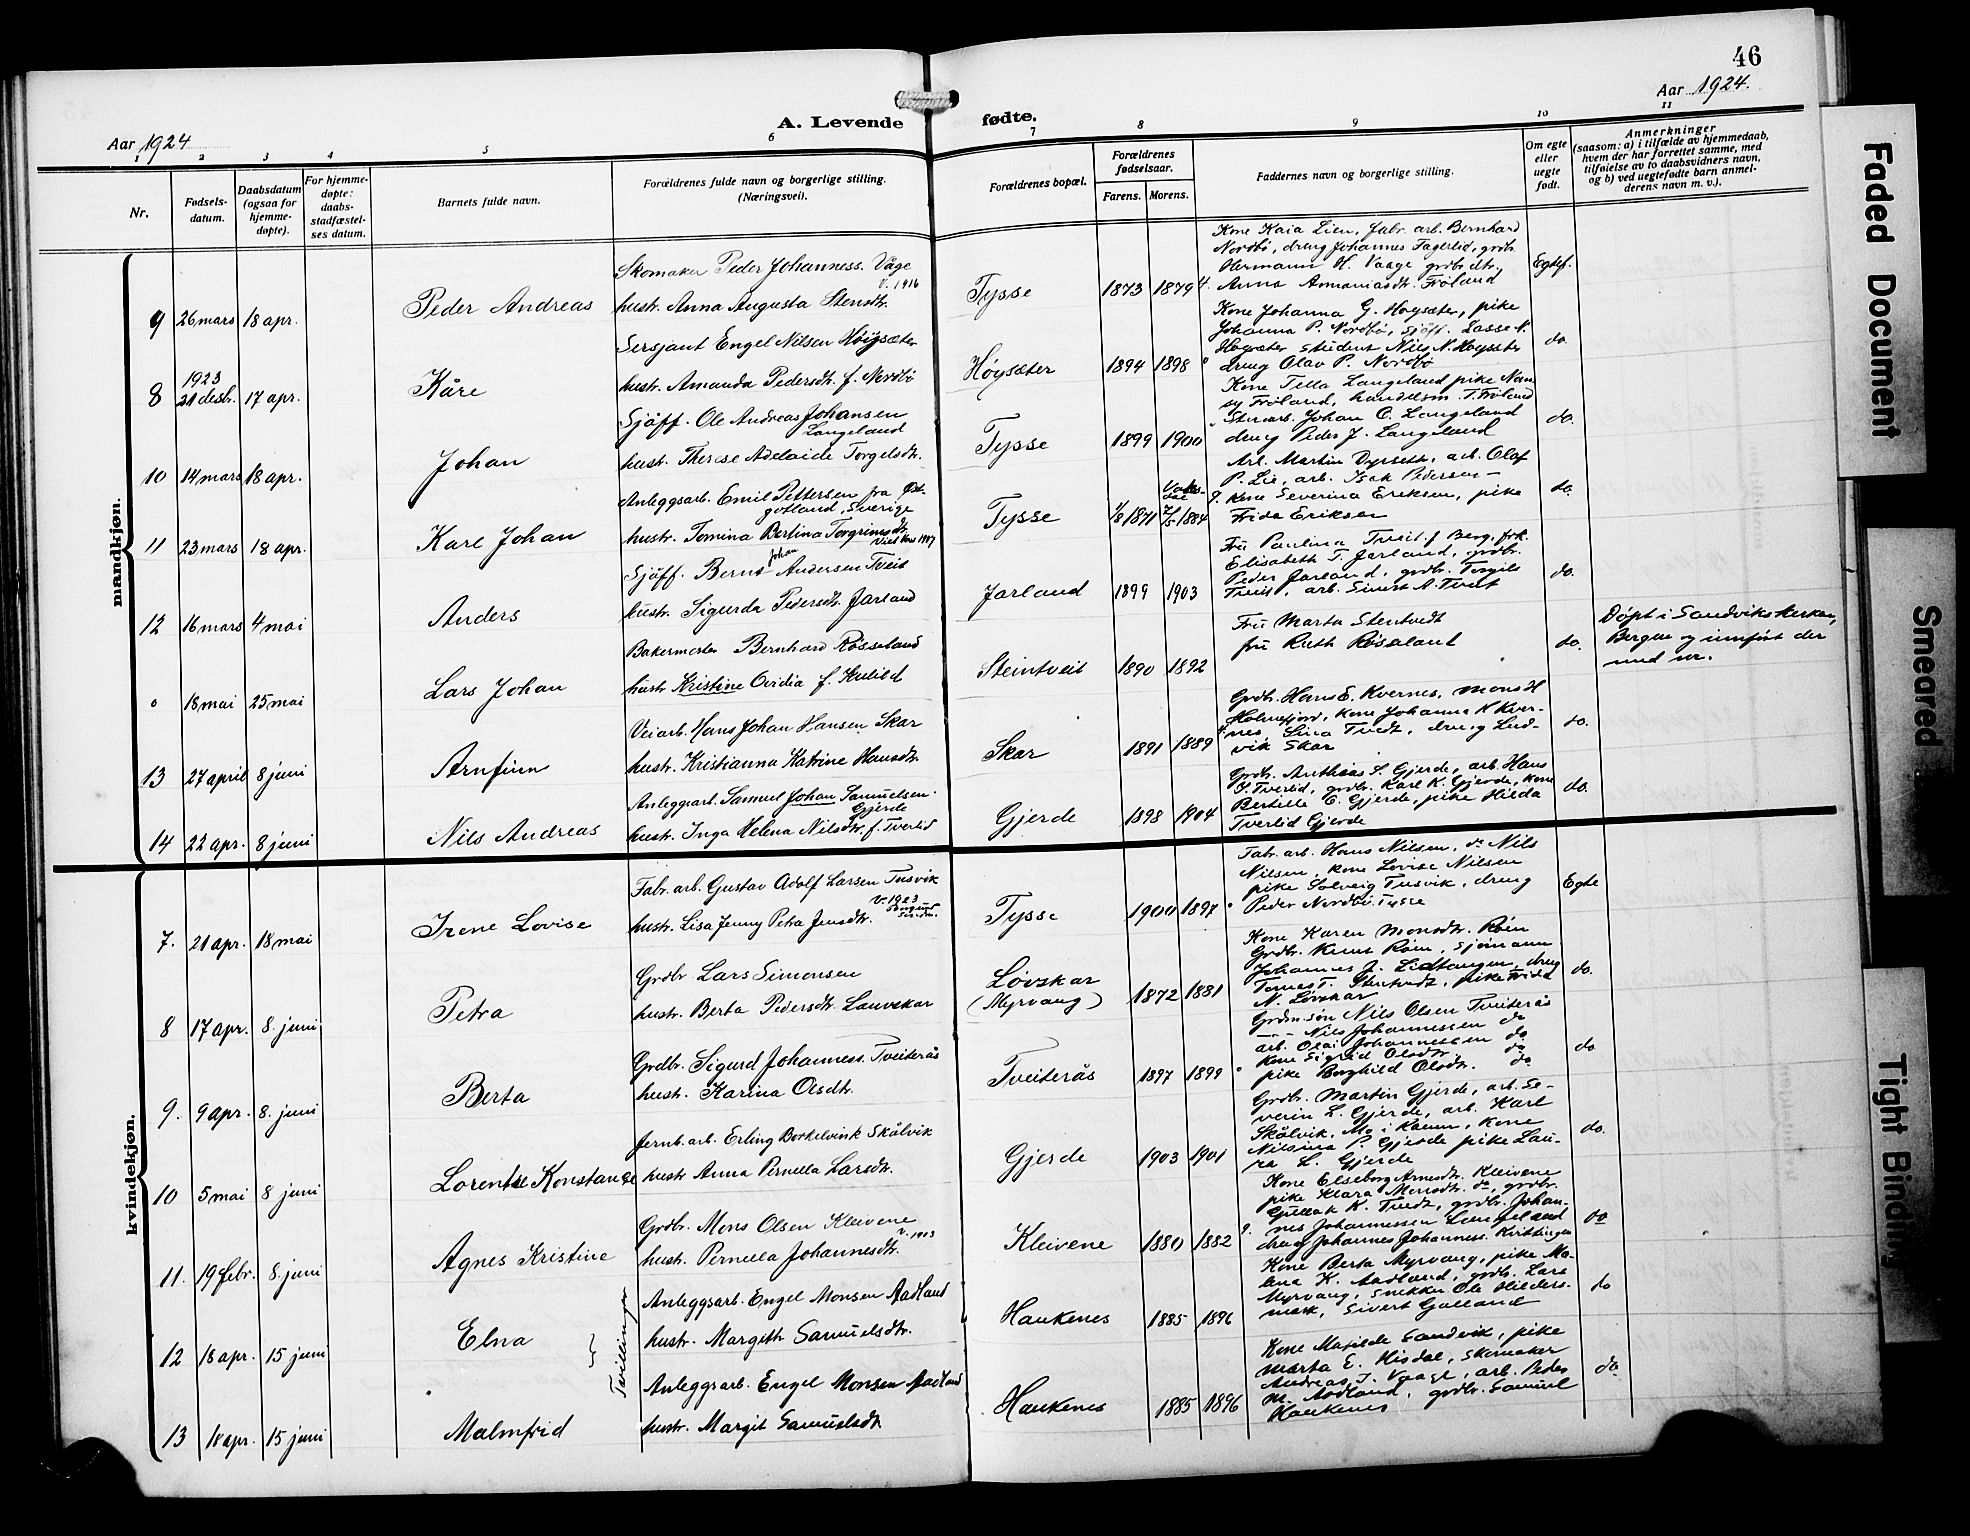 46
Aar 1924
A. Levende
fødte.
Aar 1924.
1 2 3 4 5 6 7 8 9 10 11
Nr.
Fødsels-
datum.
Daabsdatum
(ogsaa for
hjemme-
døpte).
For hjemme-
døpte:
daabs-
stadfæstel-
ses datum.
Barnets fulde navn.
Forældrenes fulde navn og borgerlige stilling.
(Næringsvei).
Forældrenes bopæl.
Forældrenes
fødselsaar.
Farens. Morens.
Faddernes navn og borgerlige stilling.
Om egte
eller
uegte
født.
Anmerkninger
(saasom: a) i tilfælde av hjemmedaab,
hvem der har forrettet samme, med
tilføielse av to daabsvidners navn,
og b) ved uegtefødte barn anmel-
derens navn m. v.).
mandkjøn.
9 26 mars 18 apr. Peder Andreas
Skomaker Peder Johanness. Våge
V. 1916
hustr. Anna Augusta Stensdtr.
Tysse 1873 1879
Kone Kaia Lien, fabr. arb. Bernhard
Nordbø, dreng Johannes Fagerlid, grdbr.
Hermann H. Vaage grdbr.dtr.
Anna Asmaniasdt. Frøland
Egtef.
8 1923
21 desbr. 17 apr. Kåre
Sersjant Engel Nilsen Høysæter
hustr. Amanda Pedersdtr. f. Nordbø
Høysæter 1894 1898
Kone Johanna G. Høysæter, pike
Johanna P. Nordbø, sjöff. Lasse N.
Høysæter student Nils N. Høysæter
dreng Olav P. Nordbø
do.
10 14 mars 18 apr. Johan
Sjöff. Ole Andreas Johansen
Langeland
hustr. Therese Adelaide Torgelsdtr.
Tysse 1899 1900
Kone Tella Langeland pike Nan-
sy Frøland, handelsm. T. Frøland
Stenarb. Johan C. Langeland
dreng Peder J. Langeland
do.
11 23 mars 18 apr. Karl Johan
Anleggsarb. Emil Pettersen fra Øst-
gotland, Sverige
hustr. Tomina Bertina Torgrimsdtr.
Tysse 1/8 1871 1884
Arb. Martin Dyrseth, arb. Olaf
P. Lie, arb. Isak Pedersen
Kone Severina Eriksen, pike
Frida Eriksen
do.
12 16 mars 4 mai Anders
Sjöff. Bernt Johan Andersen Tveit
hustr. Sigurda Pedersdtr. Jarland
Jarland 1899 1903
Fru Paulina Tveit f. Berg, frk.
Elisabeth T. Jarland, grdbr.
Peder Jarland, grdbr. Torgils
Tveit, arb. Sivert A. Tveit
do.
18 mai 25 mai Lars Johan
Bakermester Bernhard Røsseland
hustr Kristine Ovidia f. Hulild
Steintveit 1890 1892
Fru Marta Stentvedt
fru Ruth Røsseland
do.
Døpt i Sandvikskirken,
Bergen og innført der
med nr.
13 27 april 8 juni Arnfinn
Veiarb. Hans Johan Hansen Skar
hustr. Kristianna Katrine Hansdtr.
Skar 1891 1889
Grdbr. Hans E. Kvernes, Mons H
Holmefjord, Kone Johanna K Kver-
nes, Lina Tvedt, dreng Lud-
vik Skar
do.
14 22 apr. 8 juni Nils Andreas
Anleggsarb. Samuel Johan Samuelsen
Gjerde
hustr. Inga Helena Nilsdtr. f. Tverlid
Gjerde 1898 1904
Grdbr. Anthias S. Gjerde, arb Hans
J. Tverlid, grdbr. Karl K. Gjerde, Kone
Bertille C. Gjerde, pike Hilda
Tverlid Gjerde
do.
kvindekjøn.
7. 21 apr. 18 mai Irene Lovise
Fabr. arb. Gustav Adolf Larsen Tusvik
V. 1923
hustr. Lisa Jenny Petra Jensdtr.
Tysse 1900 1897
Fabr. arb. Hans Nilsen, do Nils
Nilsen, Kone Lovise Nilsen
pike Solveig Tusvik, dreng
Peder Nordbø. Tysse
Egte
8 17 apr. 8. juni Petra
Grdbr Lars Simonsen
hustr. Berta Pedersdtr. Lauvskar
Løvskar
(Myrvang) 1872 1881
Kone Karen Monsdtr. Røen
Grdbr. Knut Røen, Sjømann
Johannes J. Lidtangen, dreng
Tomas T. Stentvedt, pike Frida
N. Løvskar
do.
9. 9 apr. 8. juni Berta
Grdbr. Sigurd Johanness. Tveiterås
hustr. Karina Olsdtr.
Tveiterås 1897 1899
Grdm.søn Nils Olsen Tveiterås
— Nils Johannessen do
arb. Olai Johannessen do
Kone Sigrid Olsdtr. do
pike Borghild Olsdtr. do
do
10 5 mai 8 juni Lorentse Konstanse
Jernb. arb. Erling Borkelvink Skålvik
hustr Anna Pernilla Larsdtr.
Gjerde 1903 1901
Grdbr. Martin Gjerde, arb. Se-
verin L. Gjerde, arb. Karl
Skålvik, Mo i Ranen, Kone
Nilsina P. Gjerde pike Lau-
ra L. Gjerde
do.
11. 19 febr. 8. juni Agnes Kristine
Grdbr. Mons Olsen Kleivene
V. 1903
hustr. Pernilla Johannesdtr.
Kleivene 1880 1882
Kone Elseborg Arnesdtr. Kleivene
pike Klara Monsdtr. do, grdbr.
Gullak K. Tvedt, grdbr. Johan-
nes Johannessen Langeland
dreng Johannes Johanness.
do
12 18 apr. 15 juni Elna
Tvillinger
Anleggsarb. Engel Monsen Aadland
hustr. Margith Samuelsdtr.
Haukenes 1885 1896
Kone Berta Myrvang, pike Ma-
lena K. Aadland, grdbr. Lars
Myrvang, snekker Ole Hilders-
mark, Sivert Gaaland
do
13 18 apr. 15 juni Malmfrid
Anleggsarb. Engel Monsen Aadland
hustr. Margit Samuelsdtr
Haukenes 1885 1896
Kone Matilde Sandvik, pike
Marta E. Hisdal, Skomaker
Andreas J. Vaage, arb. Peder
M. Aadland, grdbr. Samuel
Haukenes
do
Faded Document
Smeared
Tight Binding